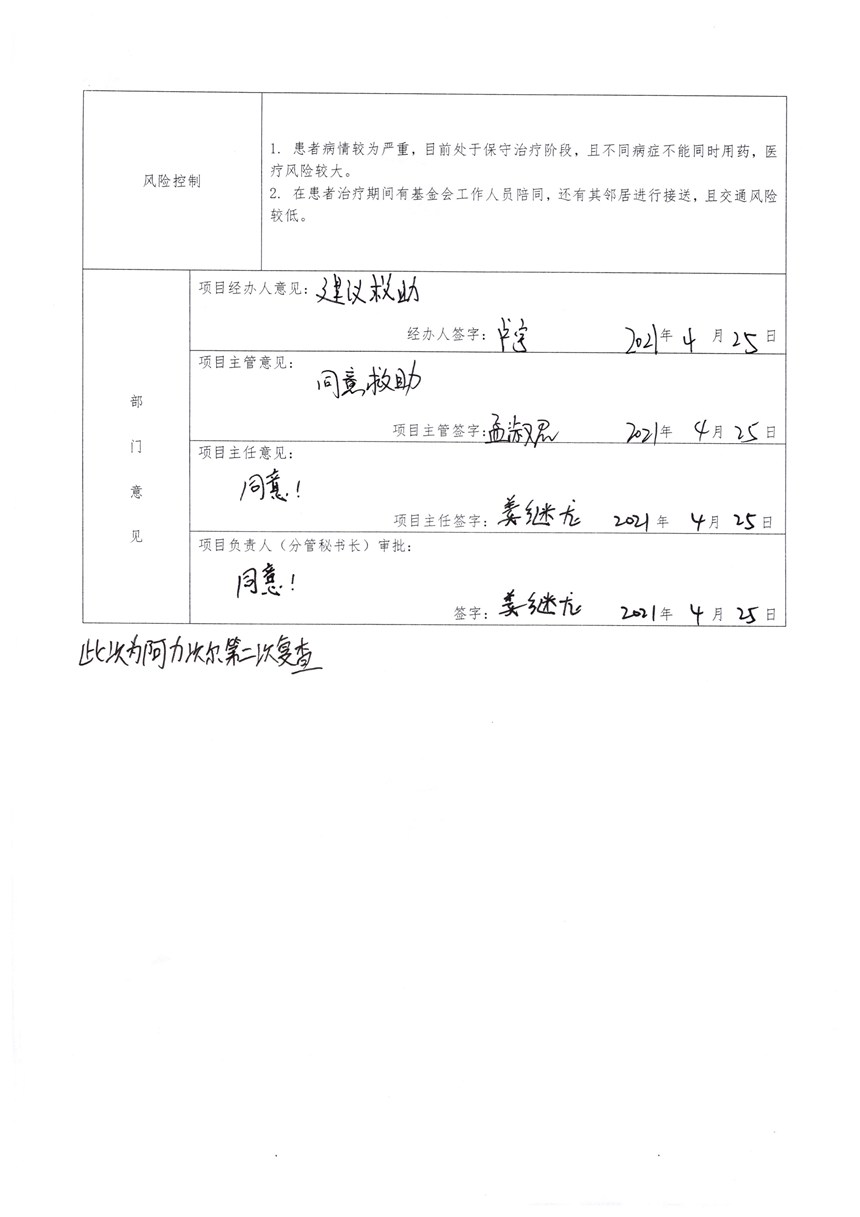 风险控制
1. 患者病情较为严重，目前处于保守治疗阶段，且不同病症不能同时用药，医
疗风险较大。
2. 在患者治疗期间有基金会工作人员陪同，还有其邻居进行接送，且交通风险
较低。
部
门
意
见
项目经办人意见：建议救助
经办人签字：卢宇 2021年 4 月 25 日
项目主管意见：
同意救助
项目主管签字：孟淑君 2021年 4月 25日
项目主任意见：
同意！
项目主任签字：姜继龙 2021年 4月 25日
项目负责人（分管秘书长）审批：
同意！
签字：姜继龙 2021年 4 月 25 日
此次为阿力次尔第二次复查